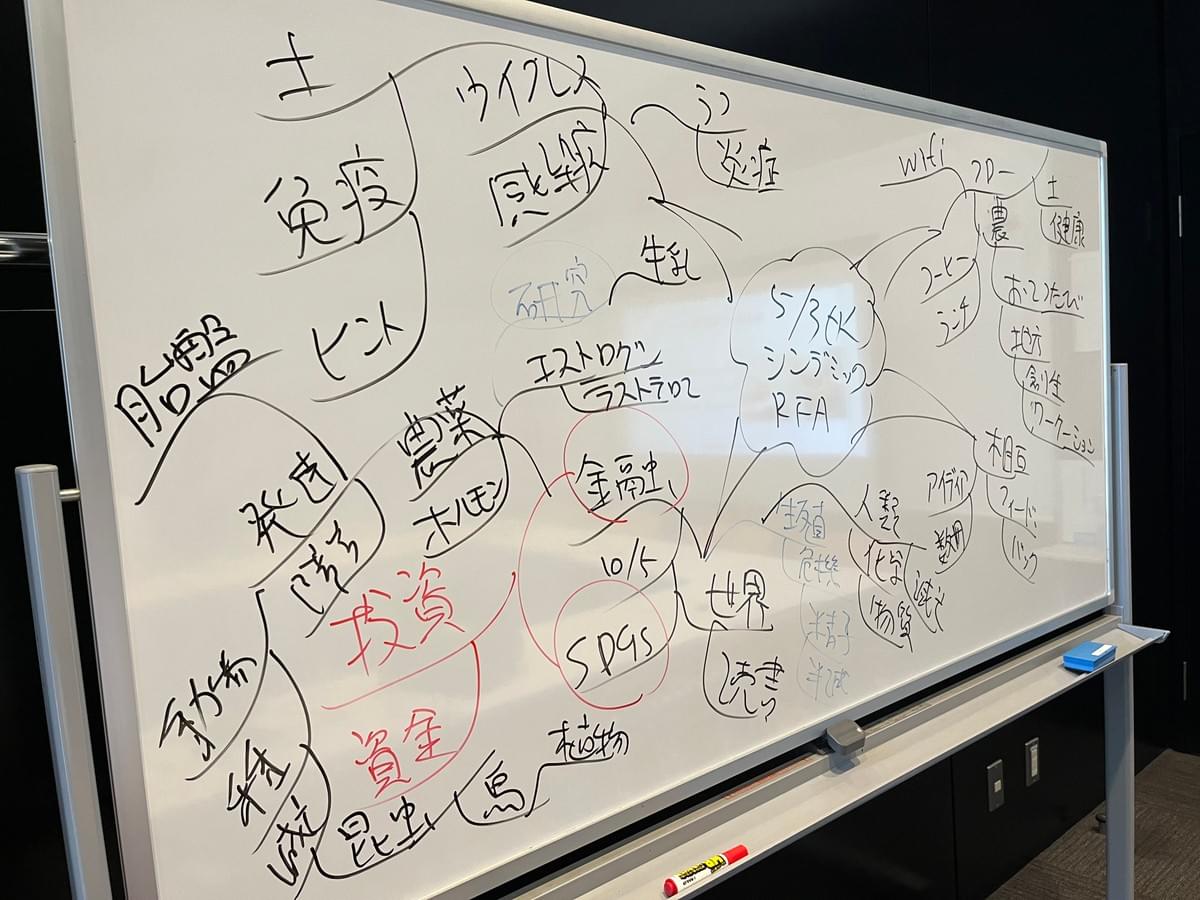 土
免疫
ヒント
ウイルス
感染
炎症
牛乳
研究
エストロゲン
ラストテロ
胎盤
発達
障
農薬
ホルモン
金融
10/5
SDGs
投資
資金
動物
種
昆虫
鳥
植物
世界
読書
5/3 EK
シンデミック
RFA
wifi
フロー
土
健康
農
コーヒー
ランチ
おてつたび
地方
創生
ワーケーション
相互
フィード
バック
アイディア
人類
化学
物質
生殖
危機
精子
半減